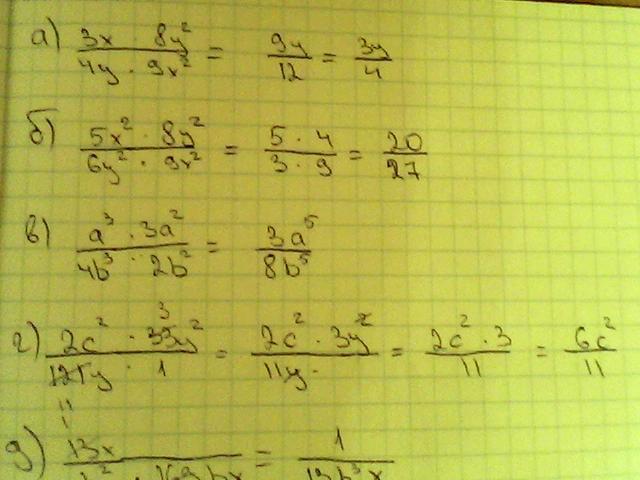 а) 3x · 8y² / 4y · 9x² = 9y / 12 = 3y / 4
б) 5x² · 8y² / 6y² · 9x² = 5 · 4 / 3 · 9 = 20 / 27
в) a³ · 3a² / 4b³ · 2b² = 3a⁵ / 8b⁵
3
г) 2c² · 33y² / 121y · 1 = 2c² · 3y² / 11y · = 2c² · 3 / 11 = 6c² / 11
11
д) 13x